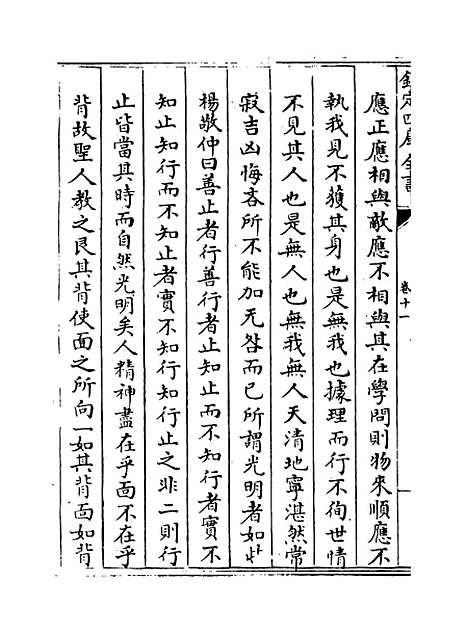 欽定四庫全書
卷十一
應正應相與敵應不相與其在學問則物來順應不
執我見不獲其身也是無我也據理而行不徇世情
不見其人也是無人也無我無人天清地寧湛然常
寂吉凶悔吝所不能加无咎而已所謂光明者如此
楊敬仲曰善止者行善行者止知止而不知行者實不
知止知行而不知止者實不知行知行止之非二則行
止皆當其時而自然光明矣人精神盡在乎面不在乎
背故聖人教之艮其背使面之所向一如其背面如背